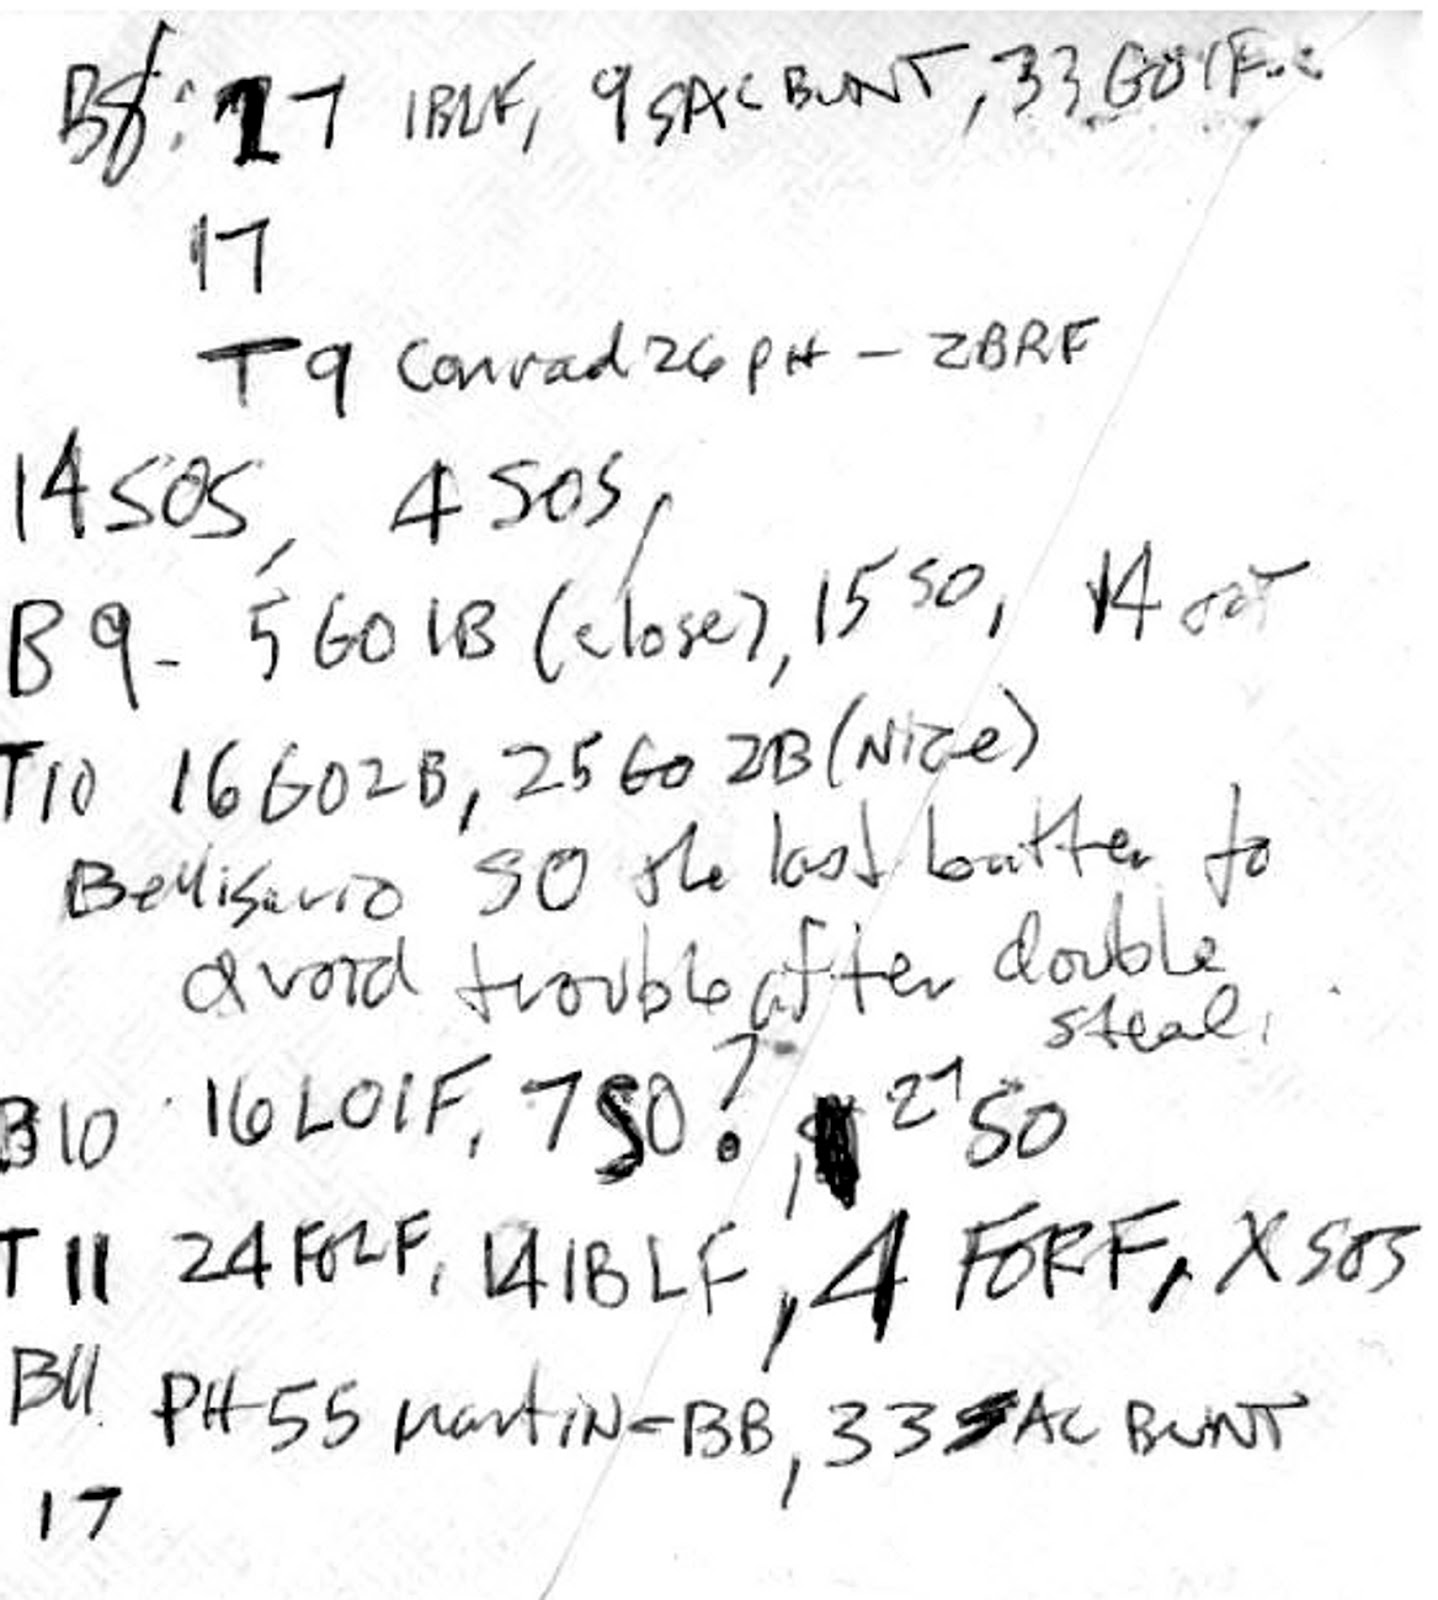 B8: 27 1BLF, 9 SAC BUNT, 33 GO1F
17
T9 Conrad 26 PH - 2BRF
14 SOS, 4 SOS,
B9- 5 GO 1B (close), 15 SO, 14 out
T10 16 GO2B, 25 GO 2B (Nice)
Bellisario SO the last batter to
avoid trouble after double
steal.
B10 16 LO1F, 7 SO?, 27 SO
T11 24 FOLF, 14 1BLF, 4 FORF, X SOS
B11 PH 55 Martin - BB, 33 SAC BUNT
17